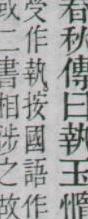 春秋傳曰執玉憜
受作執按國語作
或二書相涉之故